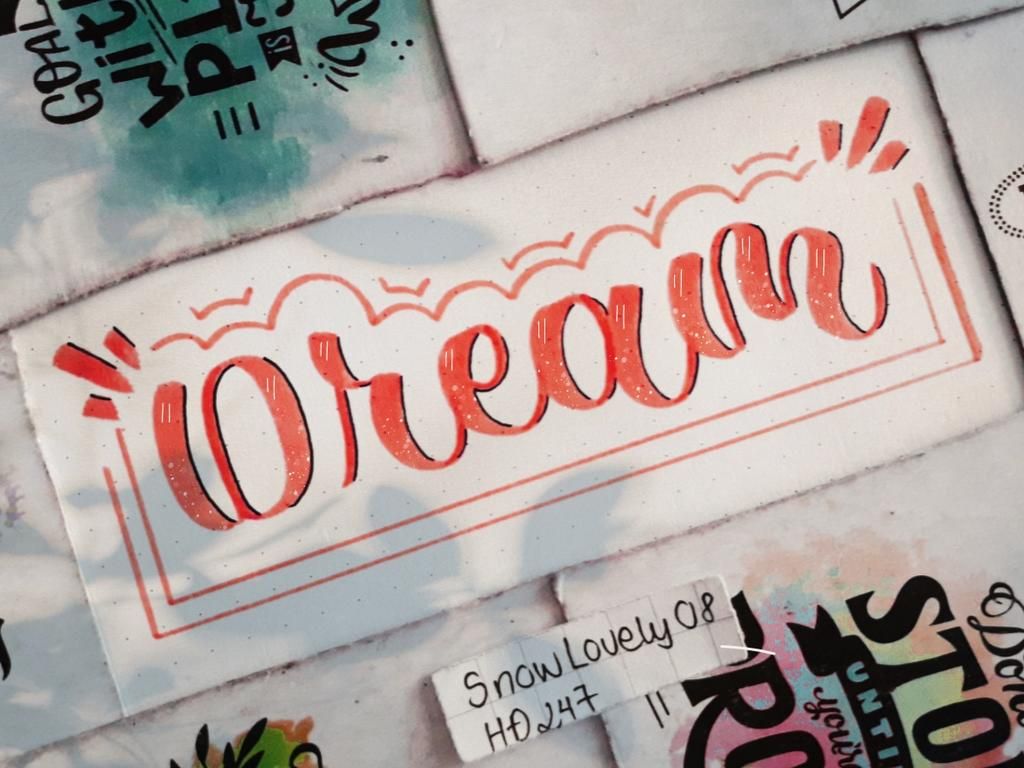 GOAL
with
PL
is
Dream
Snow Lovely 08
HD247
STO
UNTIL
you're
PRO
Don